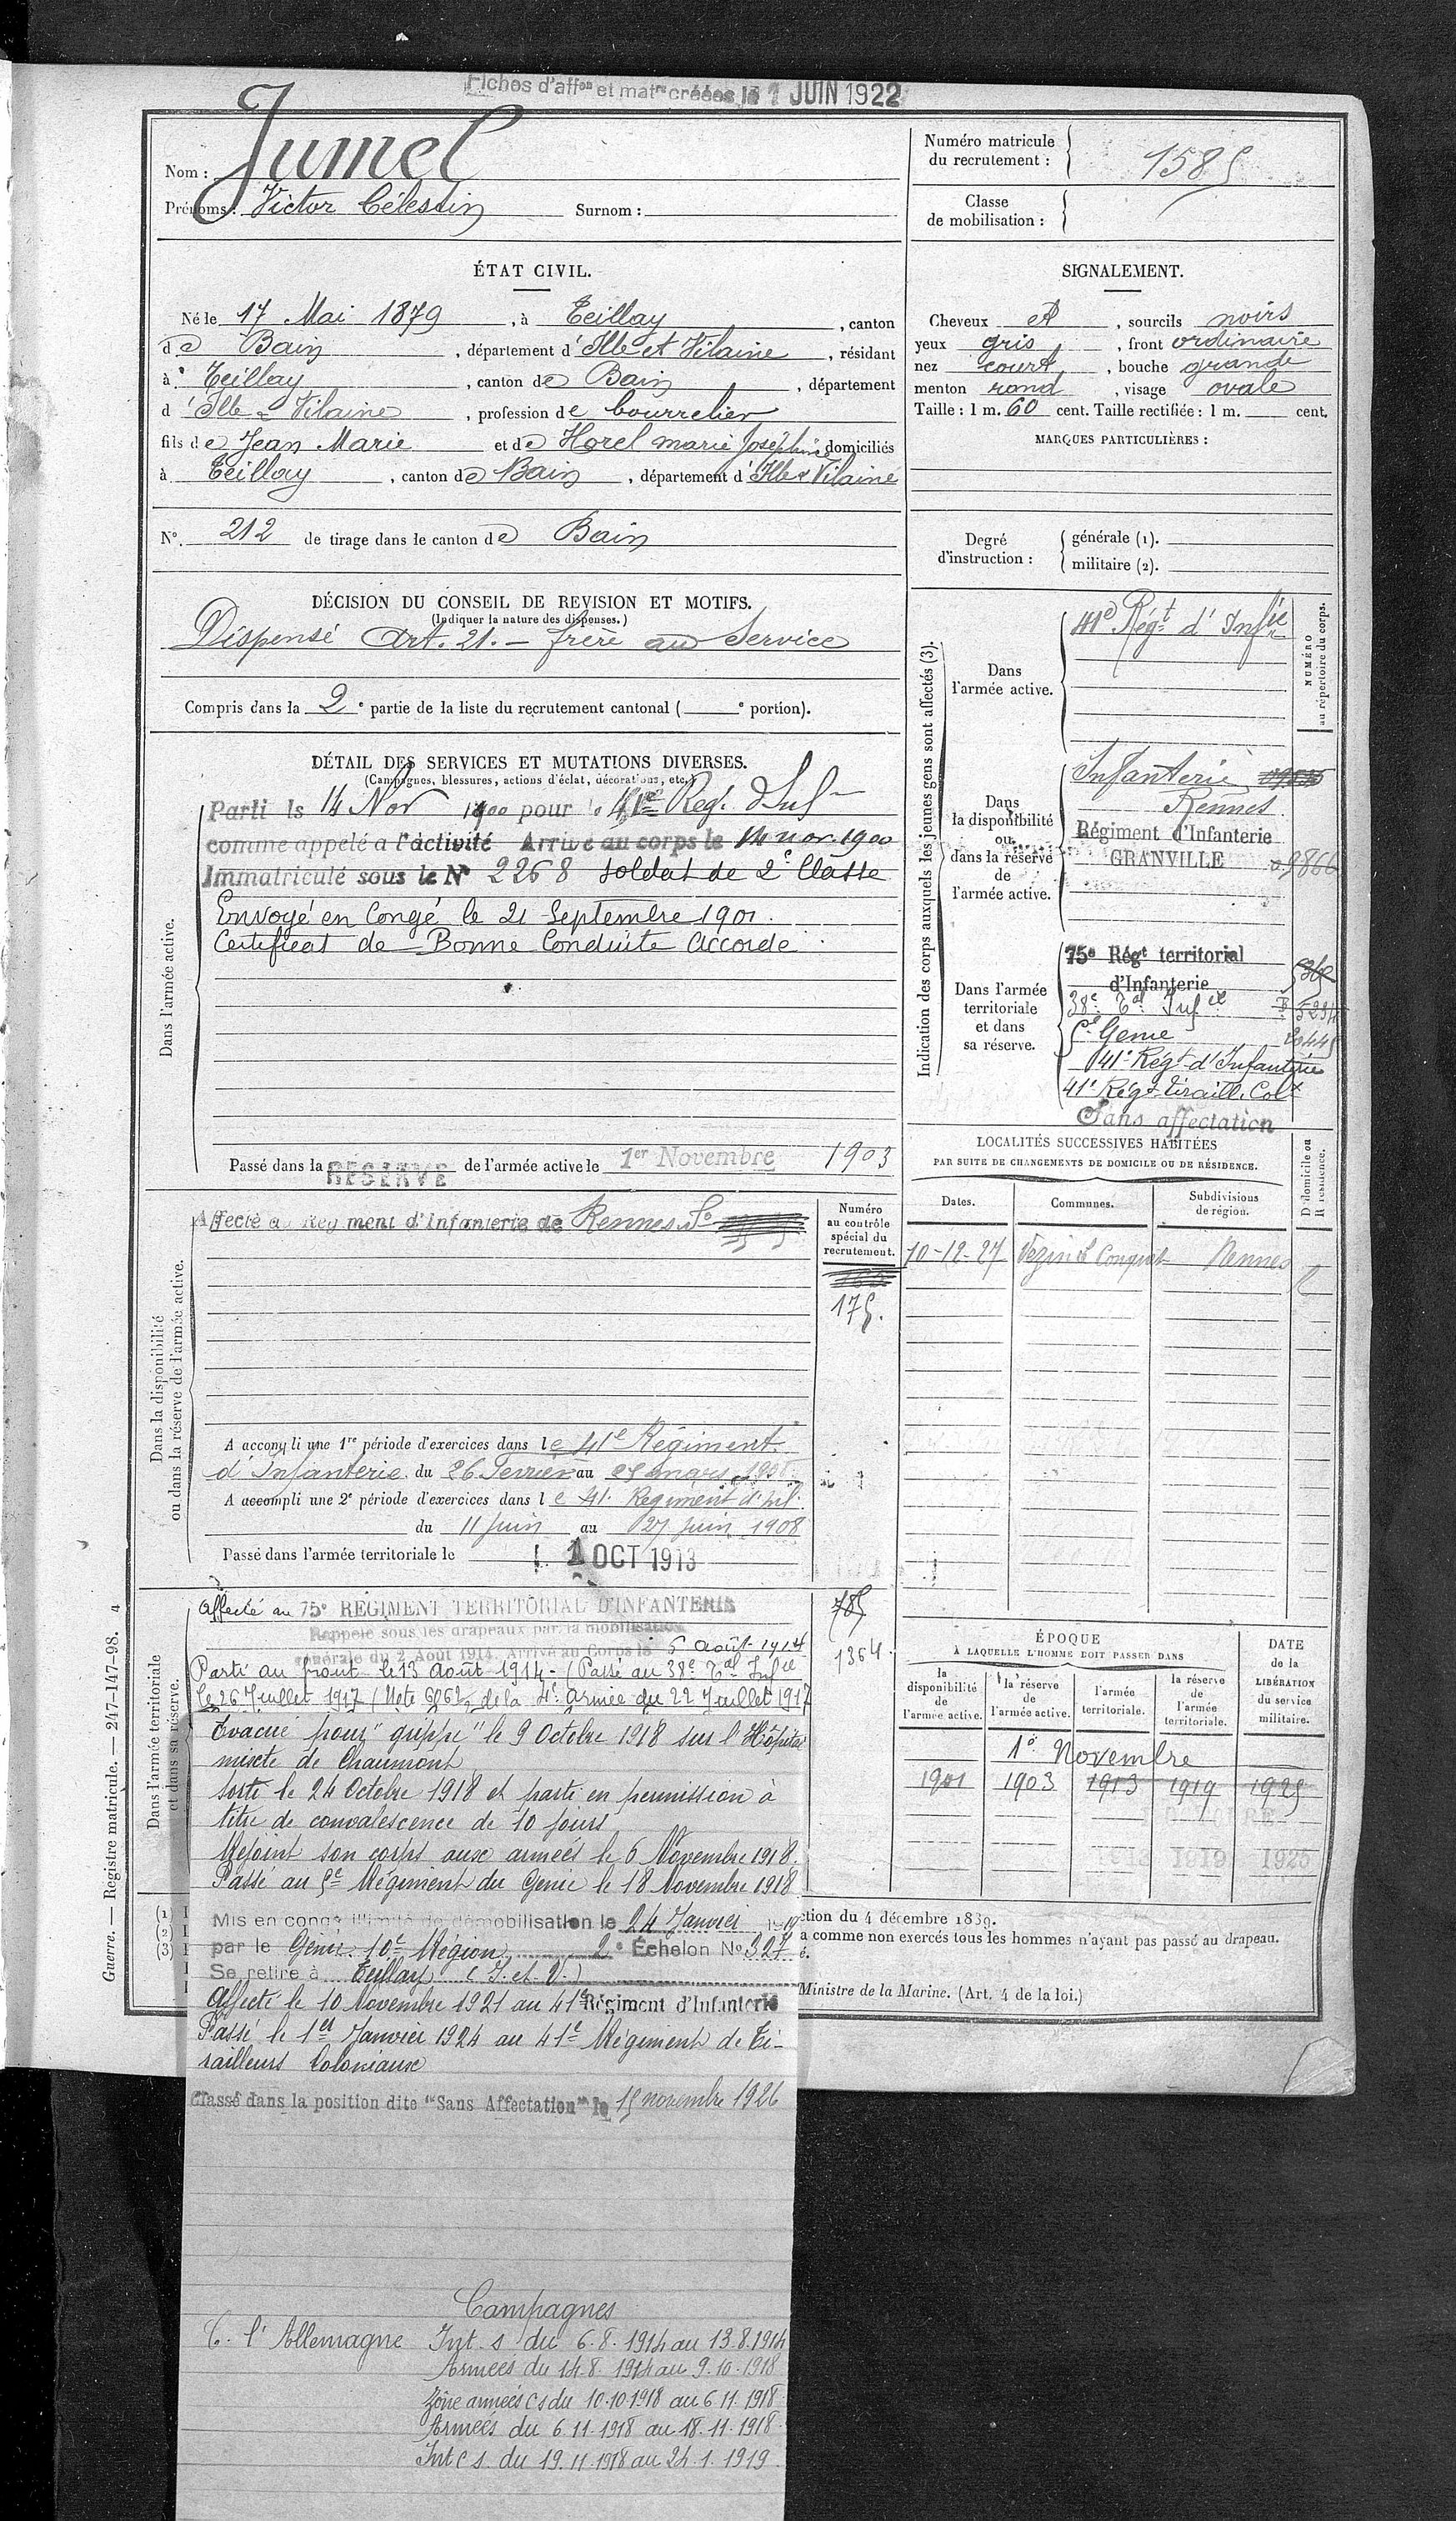 Fiches d'affon et matre créées le 1 JUIN 1922
Nom : Jumel
Prénoms : Victor Célestin Surnom :
Numéro matricule
du recrutement : 1585
Classe
de mobilisation :
ÉTAT CIVIL.
Né le 17 Mai 1879, à Teillay, canton
de Bain, département d'Ille et Vilaine, résidant
à Teillay, canton de Bain, département
d'Ille & Vilaine, profession de bourrelier
fils de Jean Marie et de Horel marie Joséphine domiciliés
à Teillay, canton de Bain, département d'Ille & Vilaine
N° 212 de tirage dans le canton de Bain
SIGNALEMENT.
Cheveux et, sourcils noirs
yeux gris, front ordinaire
nez court, bouche grande
menton rond, visage ovale
Taille : 1 m. 60 cent. Taille rectifiée : 1 m. cent.
MARQUES PARTICULIÈRES :
Degré
d'instruction :
générale (1).
militaire (2).
DÉCISION DU CONSEIL DE REVISION ET MOTIFS.
(Indiquer la nature des dispenses.)
Dispensé Art. 21. - frère au Service
Compris dans la 2e partie de la liste du recrutement cantonal ( e portion).
DÉTAIL DES SERVICES ET MUTATIONS DIVERSES.
(Campagnes, blessures, actions d'éclat, décorations, etc.)
Dans l'armée active.
Parti le 14 Nov 1900 pour le 41e Reg. d'Inf
comme appelé a l'activité Arrivé au corps le 14 nov. 1900
Immatriculé sous le N° 2268 soldat de 2e Classe
Envoyé en Congé le 21 Septembre 1901.
Certificat de Bonne Conduite Accordé
Passé dans la RESERVE de l'armée active le 1er Novembre 1903
Indication des corps auxquels les jeunes gens sont affectés (3).
NUMÉRO
au répertoire du corps.
Dans
l'armée active.
41e Régt d'Infie
Dans
la disponibilité
ou
dans la réserve
de
l'armée active.
Infanterie
Rennes
Régiment d'Infanterie
GRANVILLE 09866
Dans l'armée
territoriale
et dans
sa réserve.
75e Régt territorial
d'Infanterie
38e Tal Infie
5e Génie
41e Régt d'Infanterie
41e Régt Tiraill. Colx
Sans affectation
LOCALITÉS SUCCESSIVES HABITÉES
PAR SUITE DE CHANGEMENTS DE DOMICILE OU DE RÉSIDENCE.
Dates. Communes. Subdivisions
de région. D domicile ou
R résidence.
10-12-27 Vezin le Coquet Rennes
Dans la disponibilité
ou dans la réserve de l'armée active.
Affecté au Régiment d'Infanterie de Rennes
Numéro
au contrôle
spécial du
recrutement.
175.
A accompli une 1re période d'exercices dans le 41e Régiment
d'Infanterie du 26 Février au 25 mars
A accompli une 2e période d'exercices dans le 41e Régiment d'Inf.
du 11 juin au 27 juin 1908
Passé dans l'armée territoriale le 1 OCT 1913
Dans l'armée territoriale
et dans sa réserve.
Affecté au 75e RÉGIMENT TERRITORIAL D'INFANTERIE
785
Rappelé sous les drapeaux par la mobilisation
générale du 2 Août 1914. Arrivé au Corps le 6 août 1914
1364
Parti au front le 13 août 1914 - (Passé au 38e Tal Infie
le 26 Juillet 1917 (Note 6062 de la 4e armée du 22 Juillet 1917
Evacué pour "grippe" le 9 Octobre 1918 sur l'Hôpital
mixte de Chaumont
sorti le 24 Octobre 1918 et parti en permission à
titre de convalescence de 10 jours
Rejoint son corps aux armées le 6 Novembre 1918.
Passé au 5e Régiment du Génie le 18 Novembre 1918
Mis en congé illimité de démobilisation le 24 Janvier 1919
par le Génie. 10e Région 2e Échelon N° 327
Se retire à Teillay (I. et V.)
Affecté le 10 Novembre 1921 au 41e Régiment d'Infanterie
Passé le 1er Janvier 1924 au 41e Régiment de Ti-
railleurs Coloniaux
Classé dans la position dite "Sans Affectation" le 15 novembre 1926
ÉPOQUE
À LAQUELLE L'HOMME DOIT PASSER DANS
la
disponibilité
de
l'armée active.
la réserve
de
l'armée active.
l'armée
territoriale.
la réserve
de
l'armée
territoriale.
DATE
de la
LIBÉRATION
du service
militaire.
1er Novembre
1901 1903 1913 1919 1925
1913 1919 1925
(1)
(2)
(3)
ction du 4 décembre 1889.
a comme non exercés tous les hommes n'ayant pas passé au drapeau.
Ministre de la Marine. (Art. 4 de la loi.)
Guerre. — Registre matricule. — 247-147-98. 4
Campagnes
C. l'Allemagne Int. s du 6.8.1914 au 13.8.1914
Armées du 14.8.1914 au 9.10.1918
Zône armées cs du 10.10.1918 au 6.11.1918
Armées du 6.11.1918 au 18.11.1918
Int c s. du 19.11.1918 au 24.1.1919